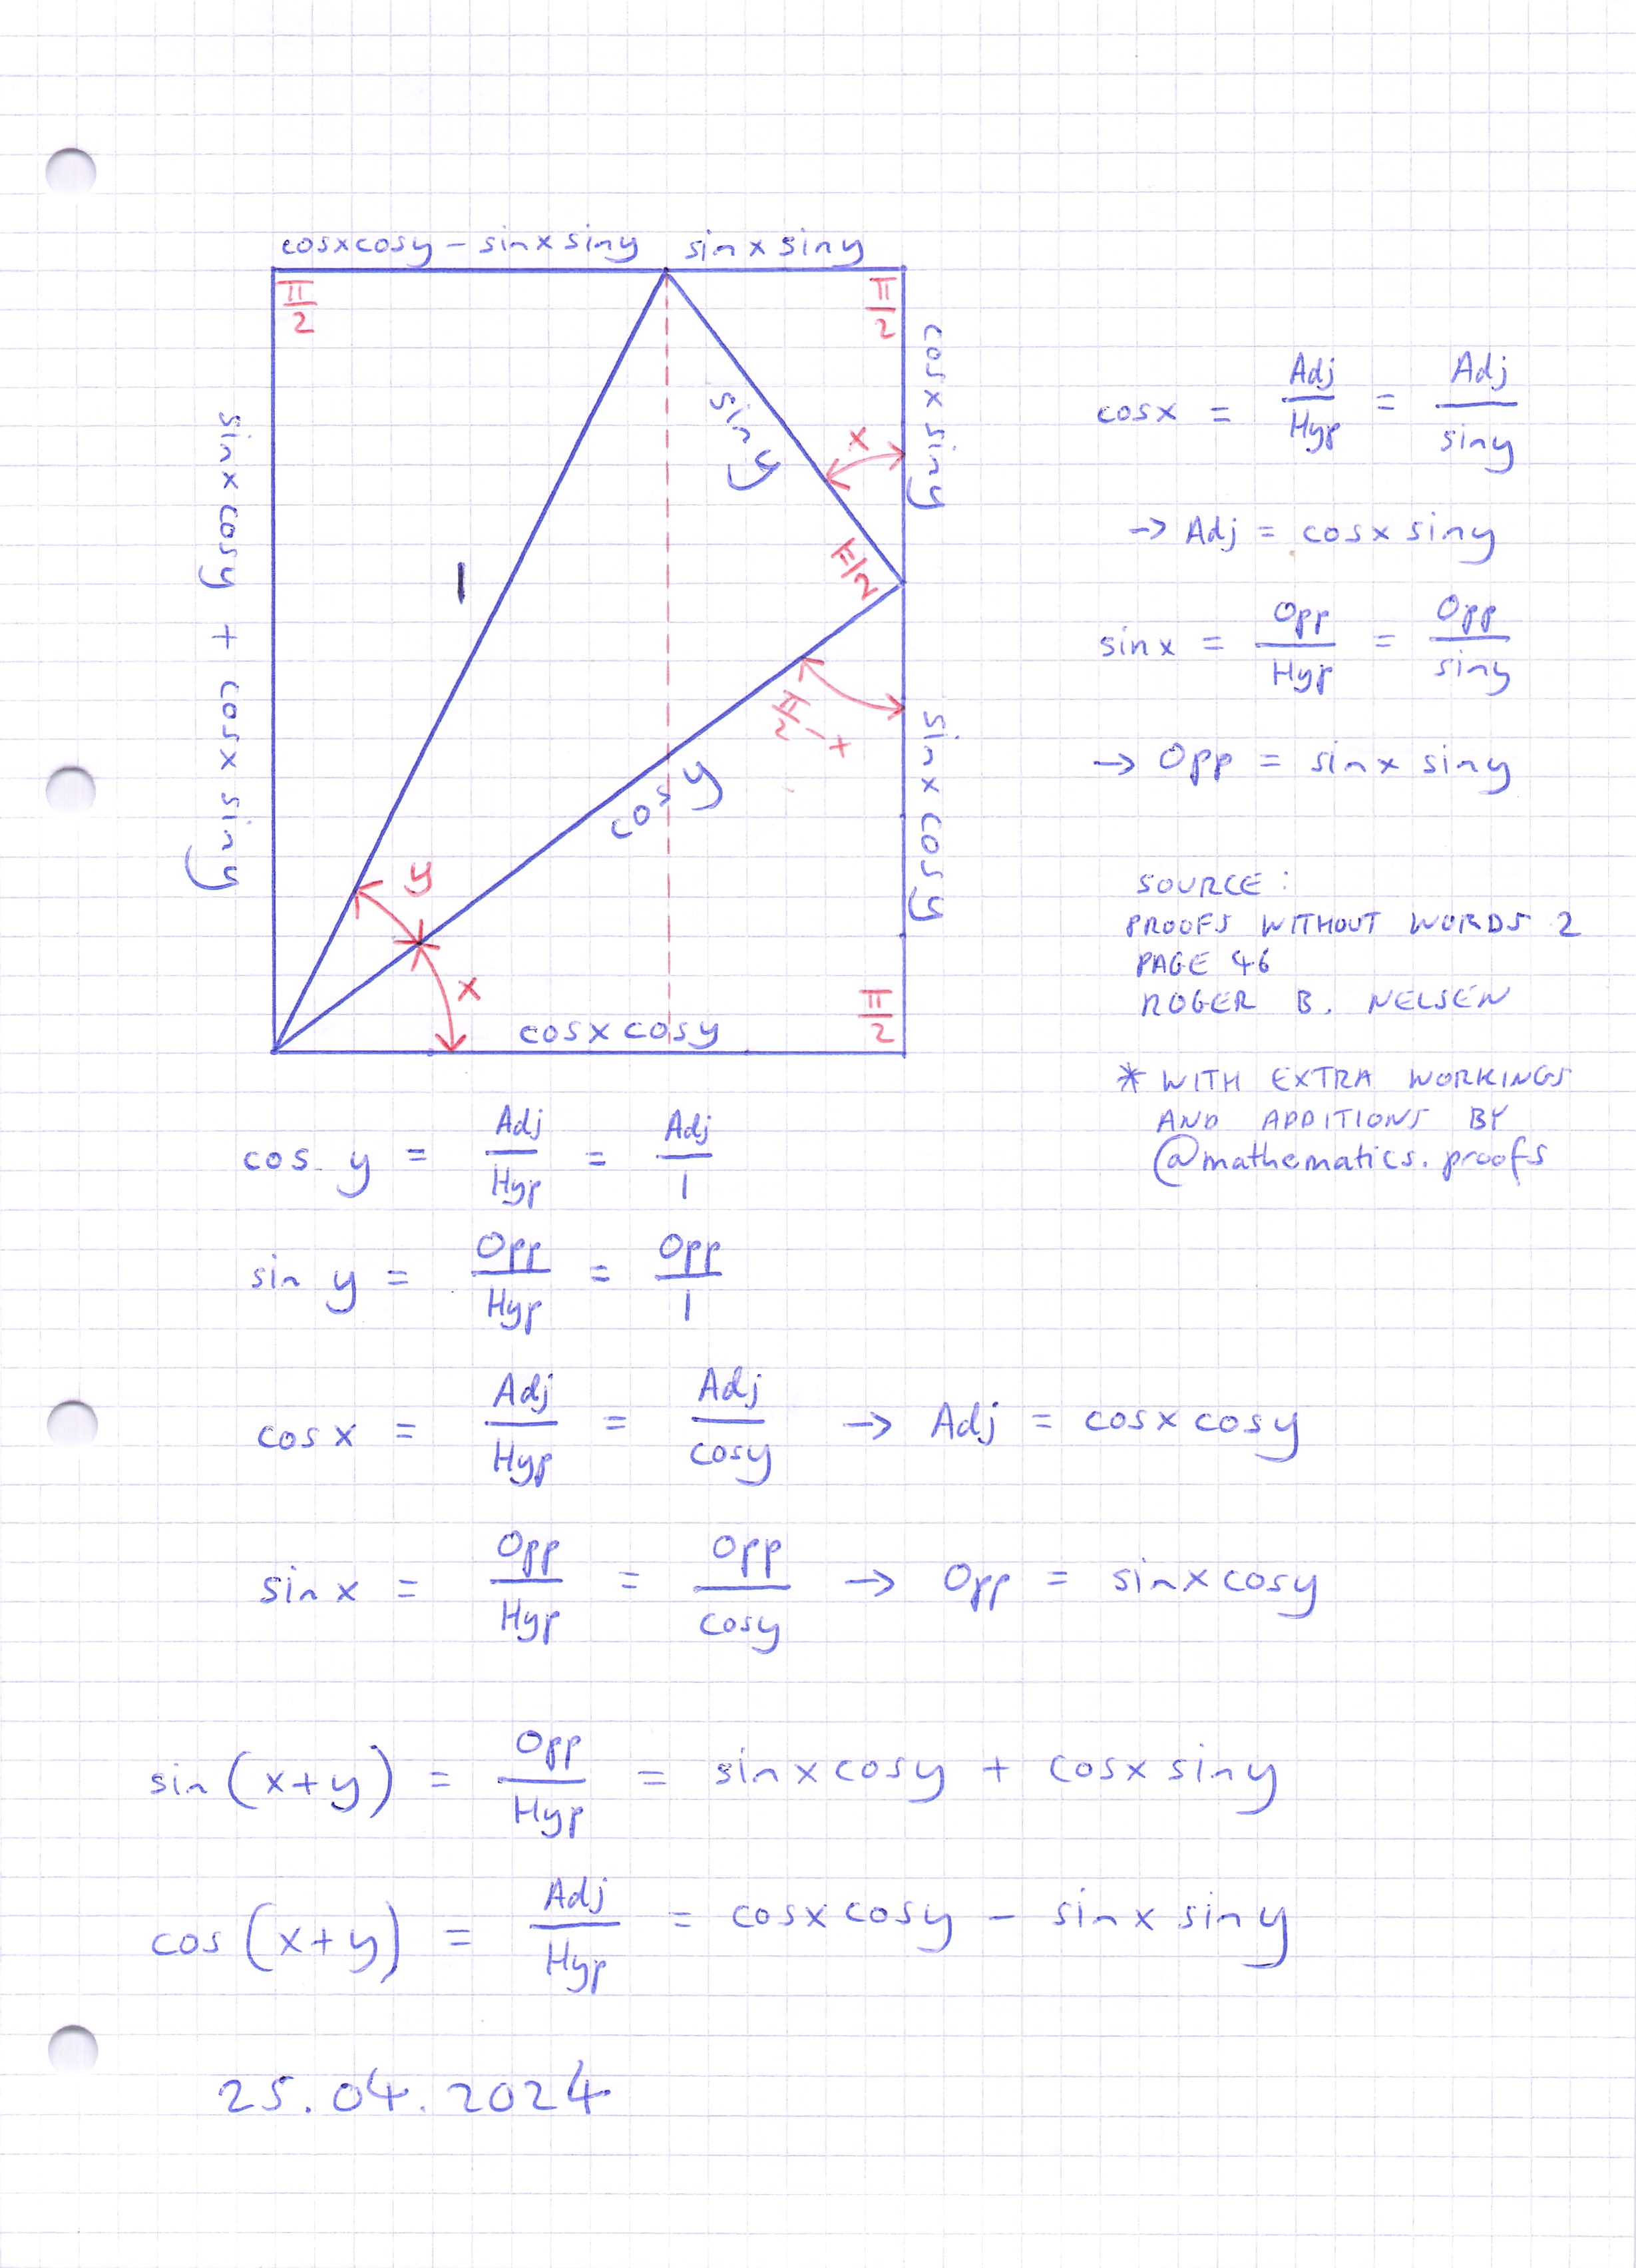 cosxcosy – sinxsiny sinxsiny
π/2 π/2
cosxsiny
sinxcosy + cosxsiny
siny
x
1
π/2
π/2 - x
cosy
sinxcosy
y
x
π/2
cosxcosy
cosx = Adj/Hyp = Adj/siny
→ Adj = cosxsiny
sinx = Opp/Hyp = Opp/siny
→ Opp = sinxsiny
SOURCE:
PROOFS WITHOUT WORDS 2
PAGE 46
ROGER B. NELSEN
* WITH EXTRA WORKINGS
AND ADDITIONS BY
@mathematics.proofs
cos y = Adj/Hyp = Adj/1
sin y = Opp/Hyp = Opp/1
cosx = Adj/Hyp = Adj/cosy → Adj = cosxcosy
sinx = Opp/Hyp = Opp/cosy → Opp = sinxcosy
sin(x+y) = Opp/Hyp = sinxcosy + cosxsiny
cos(x+y) = Adj/Hyp = cosxcosy – sinxsiny
25.04.2024